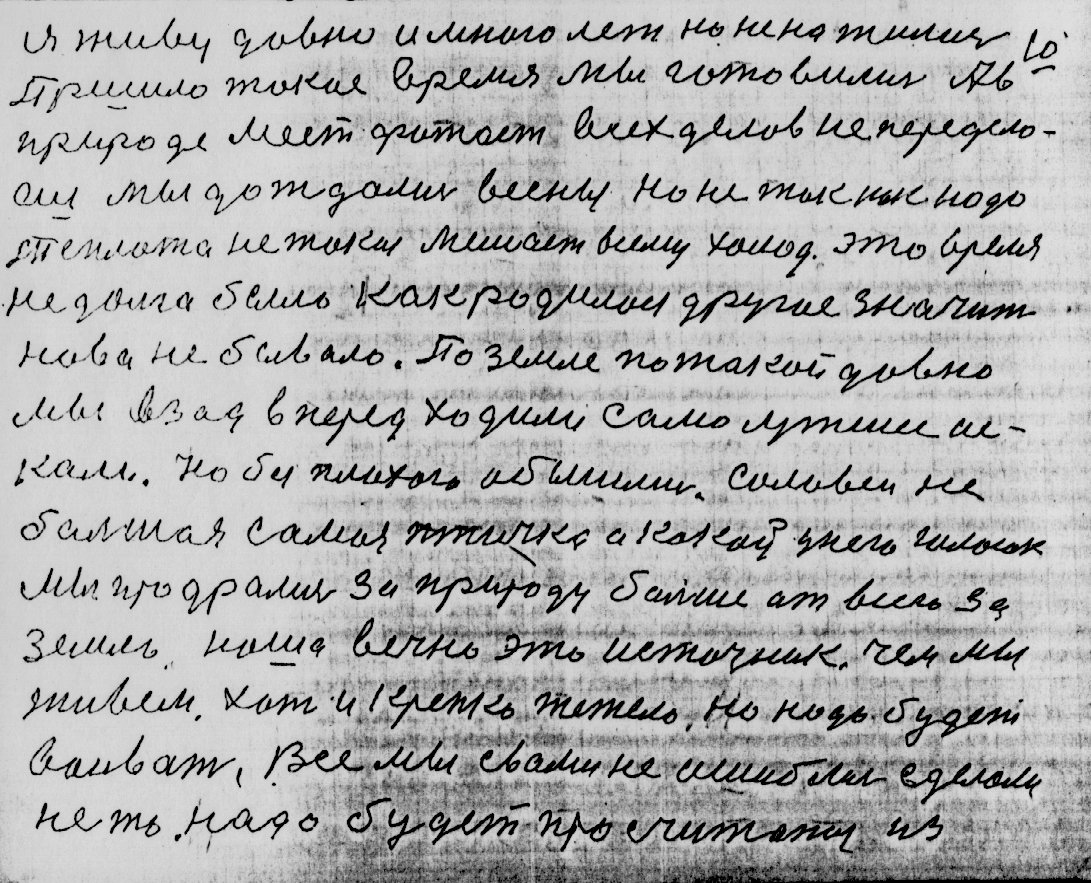 и живу давно и много лет но ненажилия 10
Пришло такое время мы готовилия А в
природе мест фатает всех делов непередела-
еш мы дождалия весны но не так как надо
Теплота не такая мешает всему холод. это время
не долга было как родилося другое значит
нова не бывало. По земле по такой давно
мы взад вперед ходили само лучшие ис-
кали. Но бы плохого
балшая самая птичка а какой унего голосок
мы продралия за природу балше ат всего за
землю. наша вечно это источник. чем мы
живем. хат и крепко тежело, но надо будет
Все мы свами не сделали
не то, надо будет просчитаты из